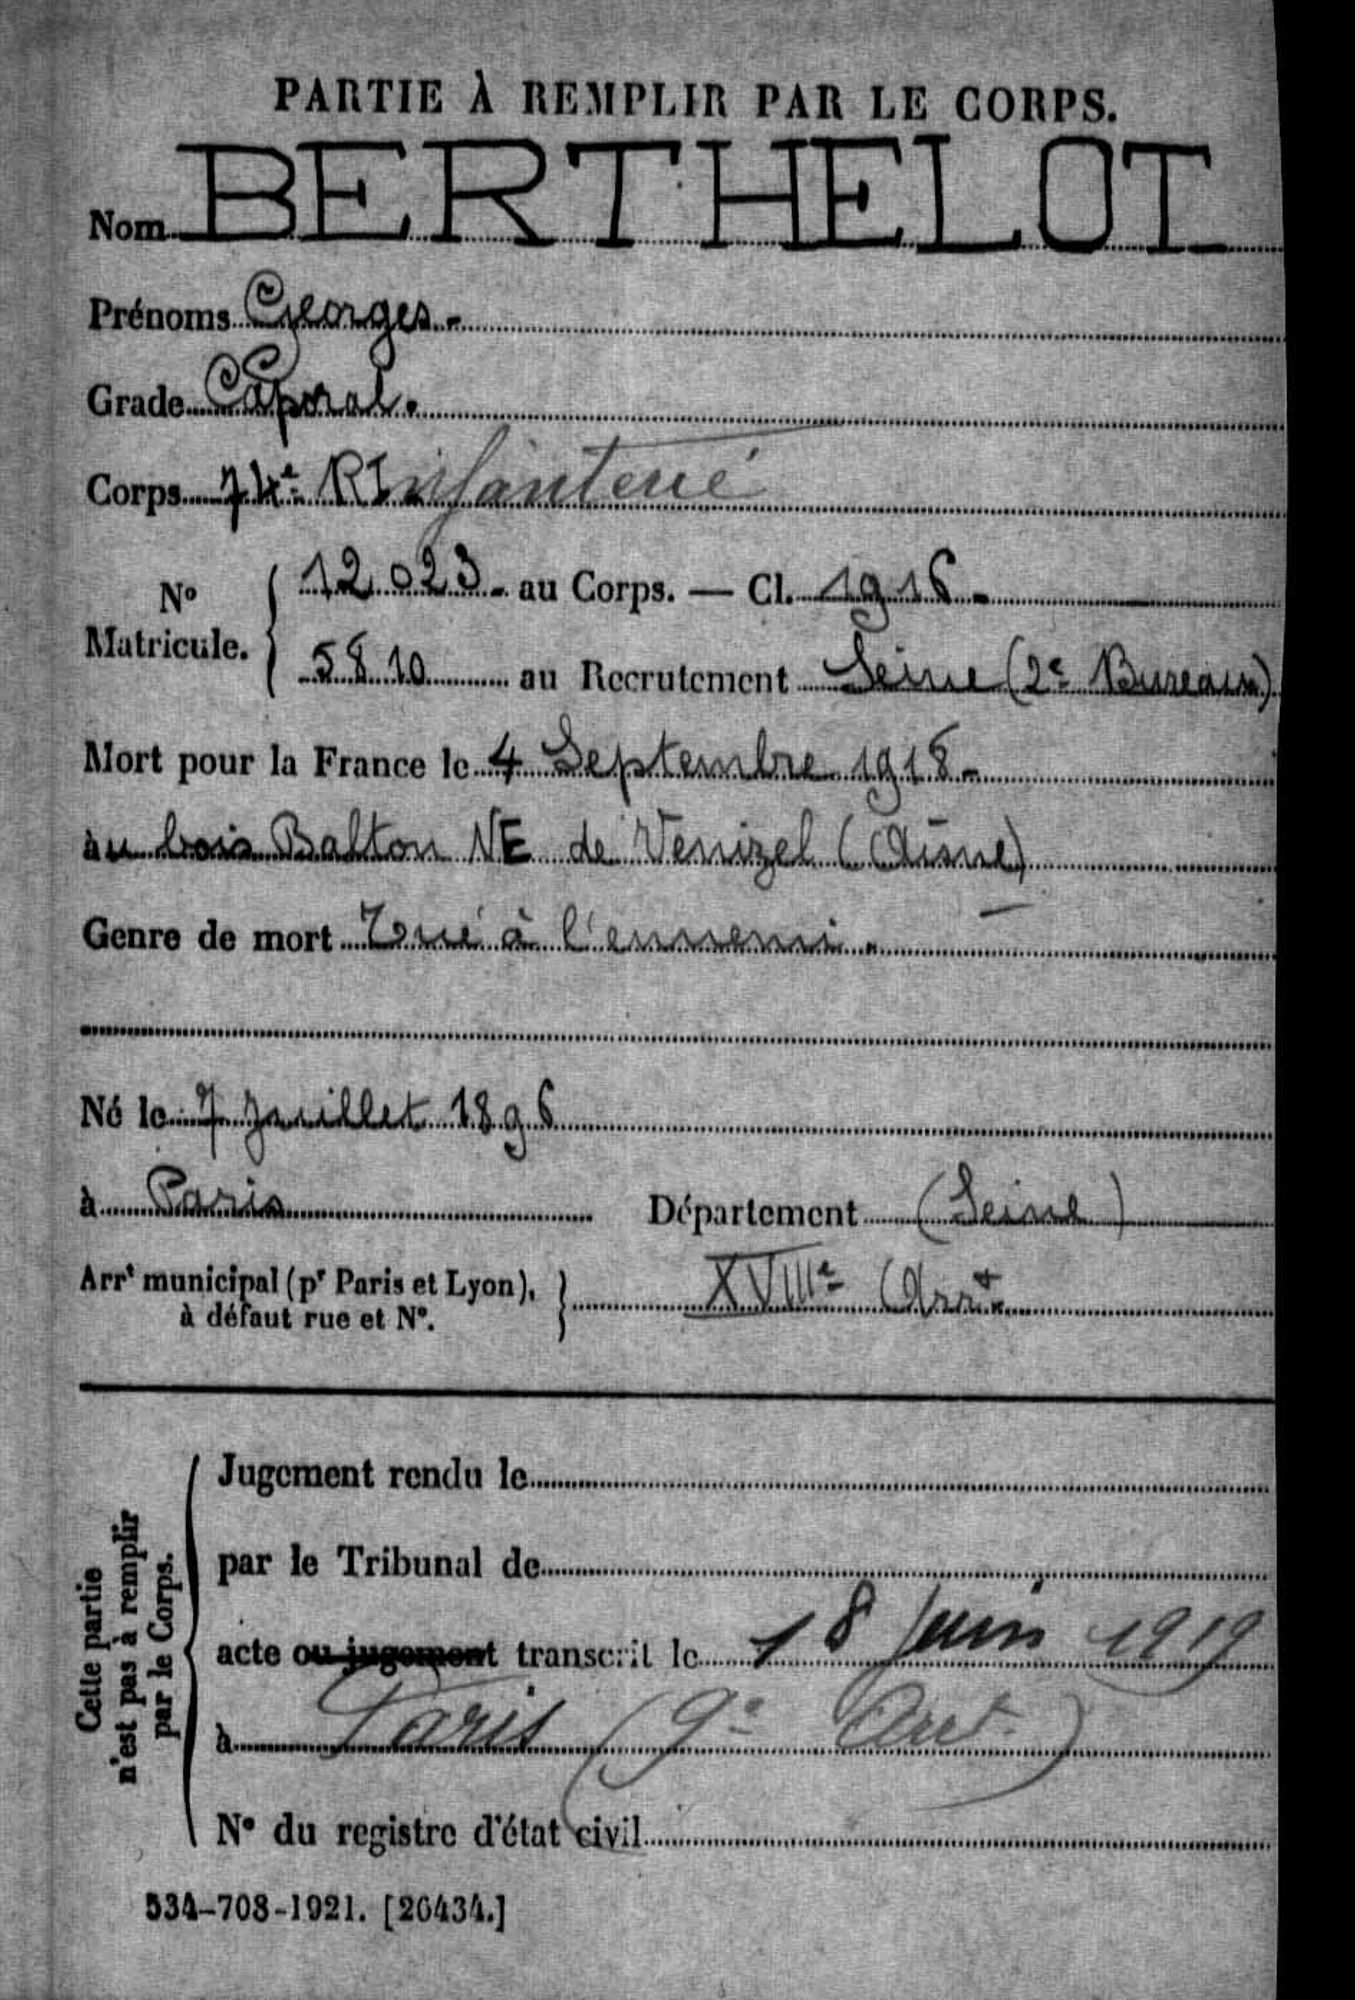 PARTIE À REMPLIR PAR LE CORPS.
Nom BERTHELOT
Prénoms Georges.-
Grade Caporal.
Corps 74e RInfanterie
No Matricule. { 12023.- au Corps. — Cl. 1916.-
5810 au Recrutement Seine (2e Bureau)
Mort pour la France le 4 Septembre 1918.-
au bois Balton NE de Venizel (Aisne)
Genre de mort Tué à l'ennemi.
Né le 7 Juillet 1896
à Paris Département (Seine)
Arrt municipal (pr Paris et Lyon), à défaut rue et No. } XVIIIe Arrt.
Cette partie n'est pas à remplir par le Corps.
Jugement rendu le
par le Tribunal de
acte ou jugement transcrit le 18 juin 1919
à Paris (9e Arrt.)
No du registre d'état civil
534-708-1921. [26434.]